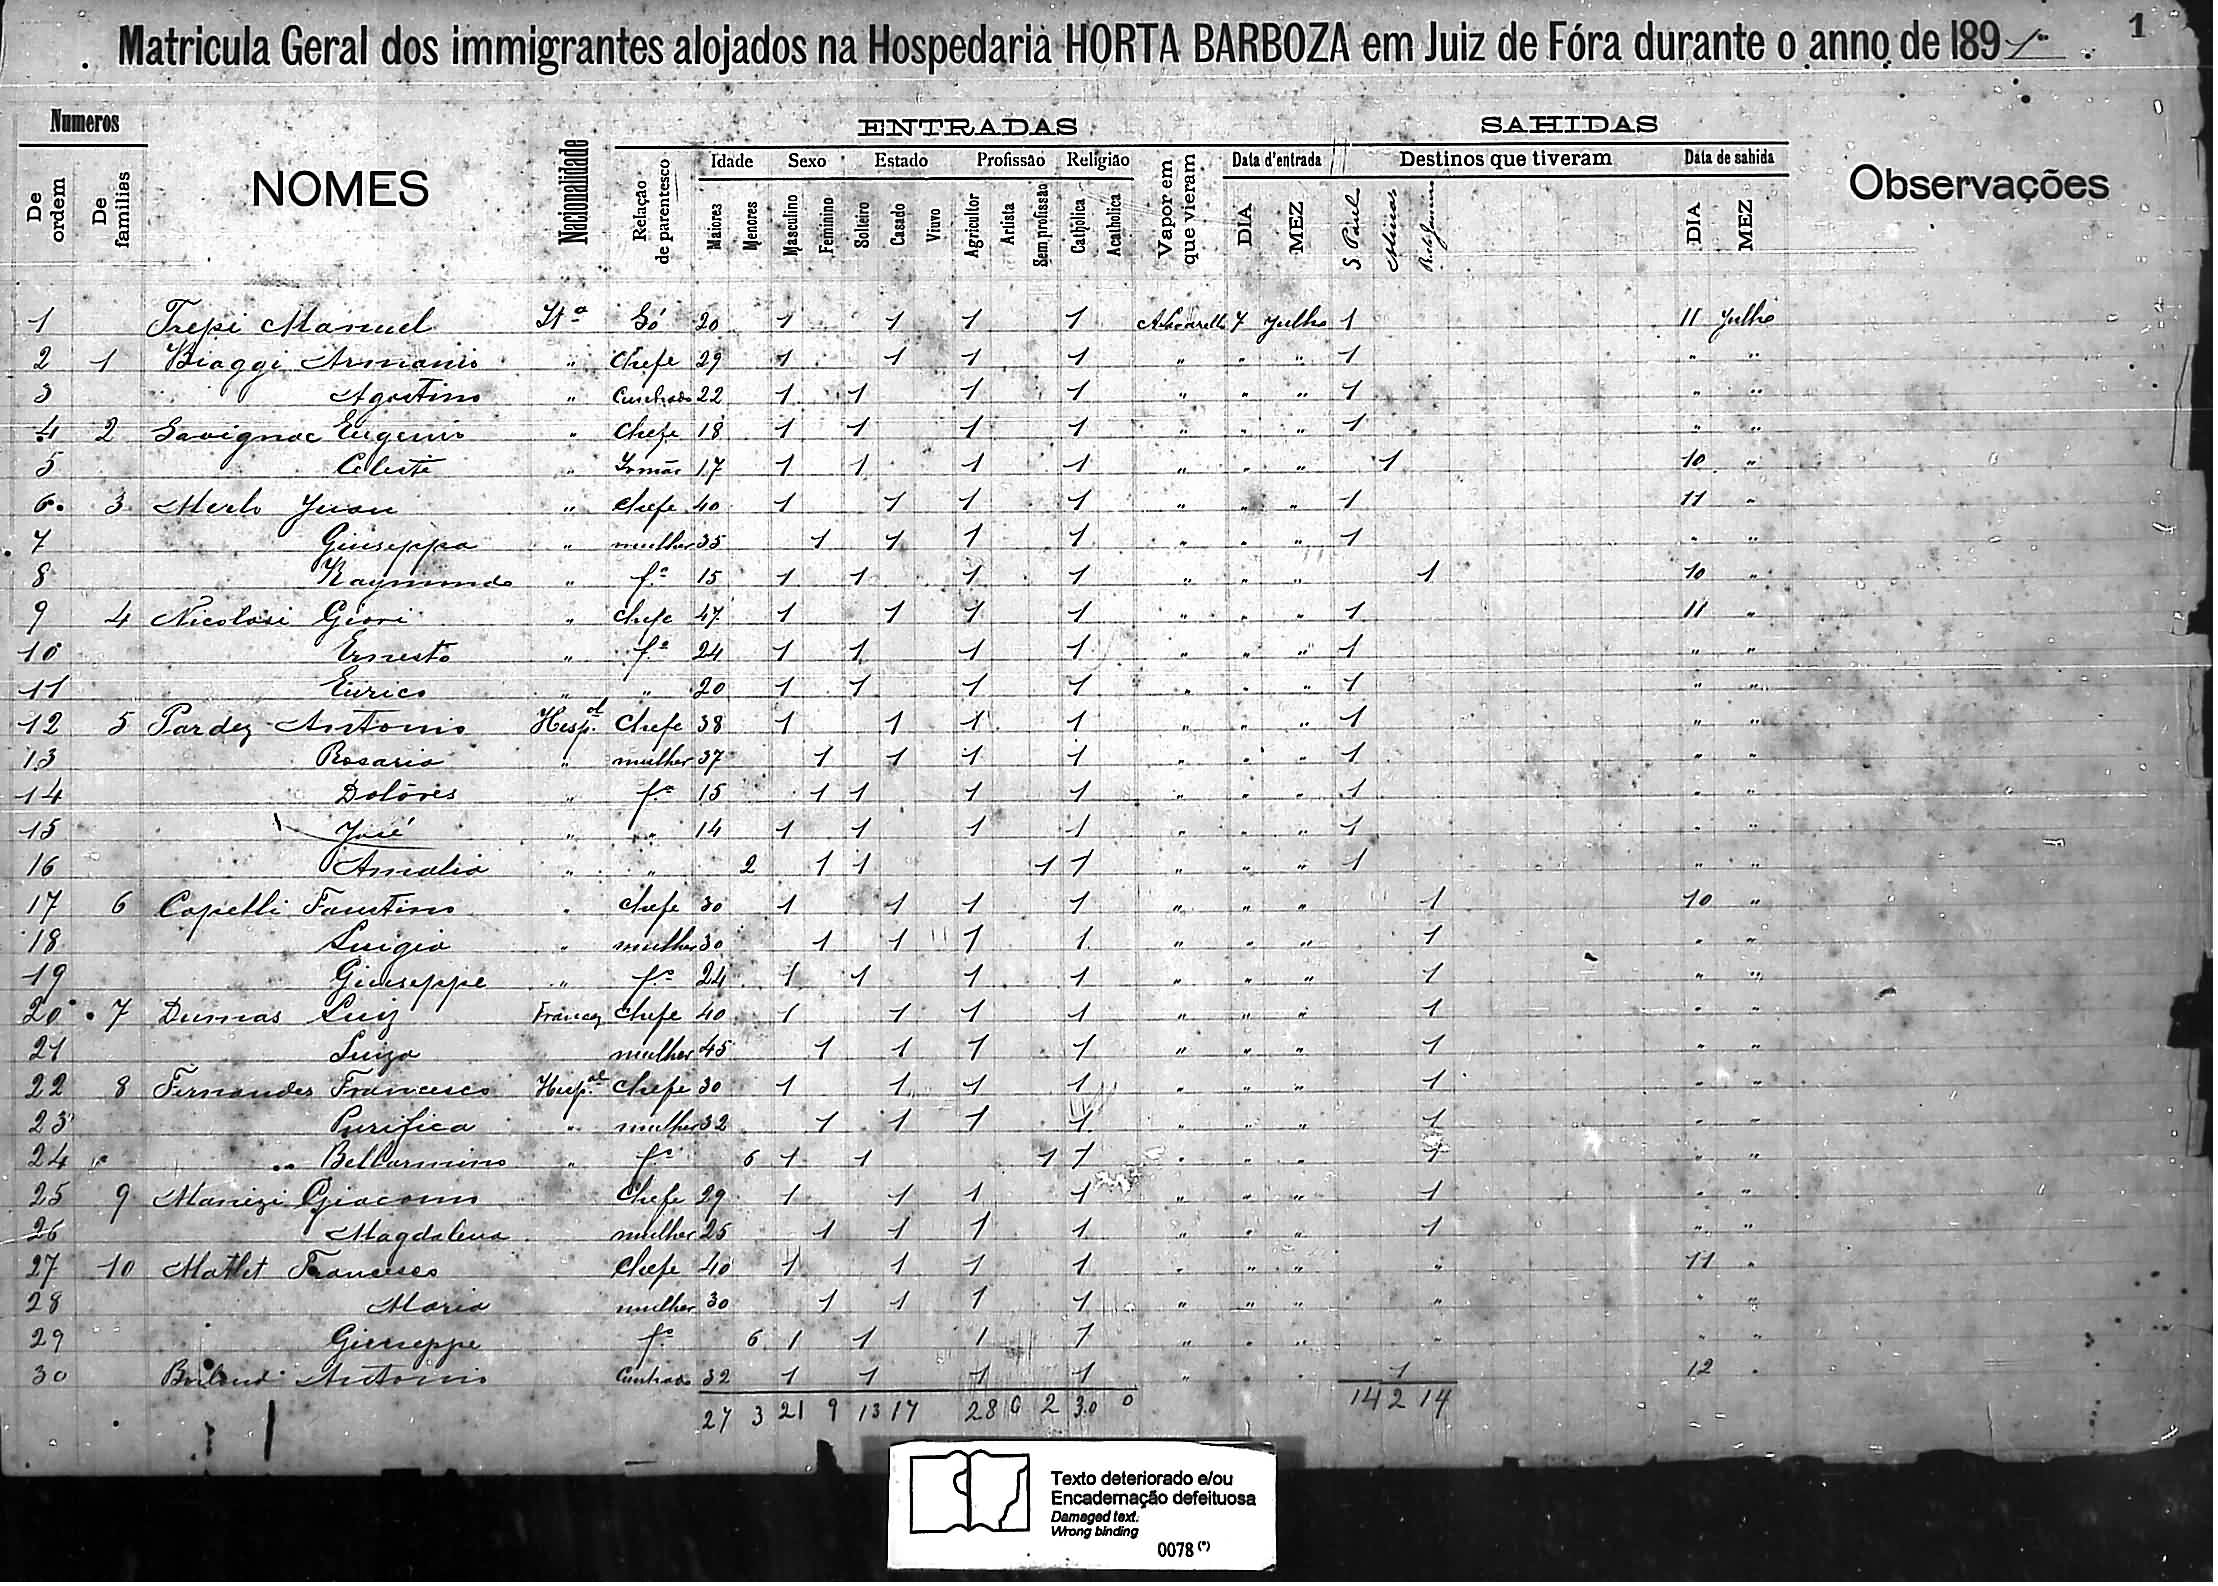 Matricula Geral dos immigrantes alojados na Hospedaria HORTA BARBOZA em Juiz de Fóra durante o anno de 189
1
Numeros NOMES Nacionalidade ENTRADAS SAHIDAS Observações
De ordem De familias Relação de parentesco Idade Sexo Estado Profissão Religião Vapor em que vieram Data d'entrada Destinos que tiveram Data de sahida
Maiores Menores Masculino Feminino Solteiro Casado Viuvo Agricultor Artista Sem profissão Catholica Acatholica DIA MEZ S Paul Minas Rio de Janeiro DIA MEZ
1 Trepi Manuel Itª Só 20 1 1 1 1 7 Julho 1 11 Julho
2 1 Biaggi Armanio " Chefe 29 1 1 1 1 " " " 1 " "
3 Agostino " Cunhado 22 1 1 1 1 " " " 1 " "
4 2 Savignac Eugenio " Chefe 18 1 1 1 1 " " " 1 " "
5 Celeste " Irmão 17 1 1 1 1 " " " 1 10 "
6 3 Merlo Juan " Chefe 40 1 1 1 1 " " " 1 11 "
7 Giuseppa " mulher 35 1 1 1 1 " " " 1 " "
8 Raymundo " fº 15 1 1 1 1 " " " 1 10 "
9 4 Nicolosi Giovi " Chefe 47 1 1 1 1 " " " 1 11 "
10 Ernesto " fº 24 1 1 1 1 " " " 1 " "
11 Eurico " " 20 1 1 1 1 " " " 1 " "
12 5 Pardez Antonio Hesp.ol Chefe 38 1 1 1 1 " " " 1 " "
13 Rosaria " mulher 37 1 1 1 1 " " " 1 " "
14 Dolôres " fª 15 1 1 1 1 " " " 1 " "
15 José " " 14 1 1 1 1 " " " 1 " "
16 Amalia " " 2 1 1 1 1 " " " 1 " "
17 6 Capelli Faustino " Chefe 30 1 1 1 1 " " " 1 10 "
18 Luigia " mulher 30 1 1 1 1 " " " 1 " "
19 Giuseppe " fº 24 1 1 1 1 " " " 1 " "
20 7 Dumas Luiz Francez Chefe 40 1 1 1 1 " " " 1 " "
21 Luiza mulher 45 1 1 1 1 " " " 1 " "
22 8 Fernandes Francesco Hesp.ol Chefe 30 1 1 1 1 " " " 1 " "
23 Purifica " mulher 32 1 1 1 1 " " " 1 " "
24 " " Bellarmino " fº 6 1 1 1 1 " " " 1 " "
25 9 Manizi Giacomo Chefe 29 1 1 1 1 " " " 1 " "
26 Magdalena mulher 25 1 1 1 1 " " " 1 " "
27 10 Mathet Francesco Chefe 40 1 1 1 1 " " " " 11 "
28 Maria mulher 30 1 1 1 1 " " " " " "
29 Giuseppe fº 6 1 1 1 1 " " " " " "
30 Antonio Cunhado 32 1 1 1 1 " " " 1 12 "
27 3 21 9 13 17 28 0 2 30 0 14 2 14
Texto deteriorado e/ou
Encadernação defeituosa
Damaged text.
Wrong binding
0078 (*)